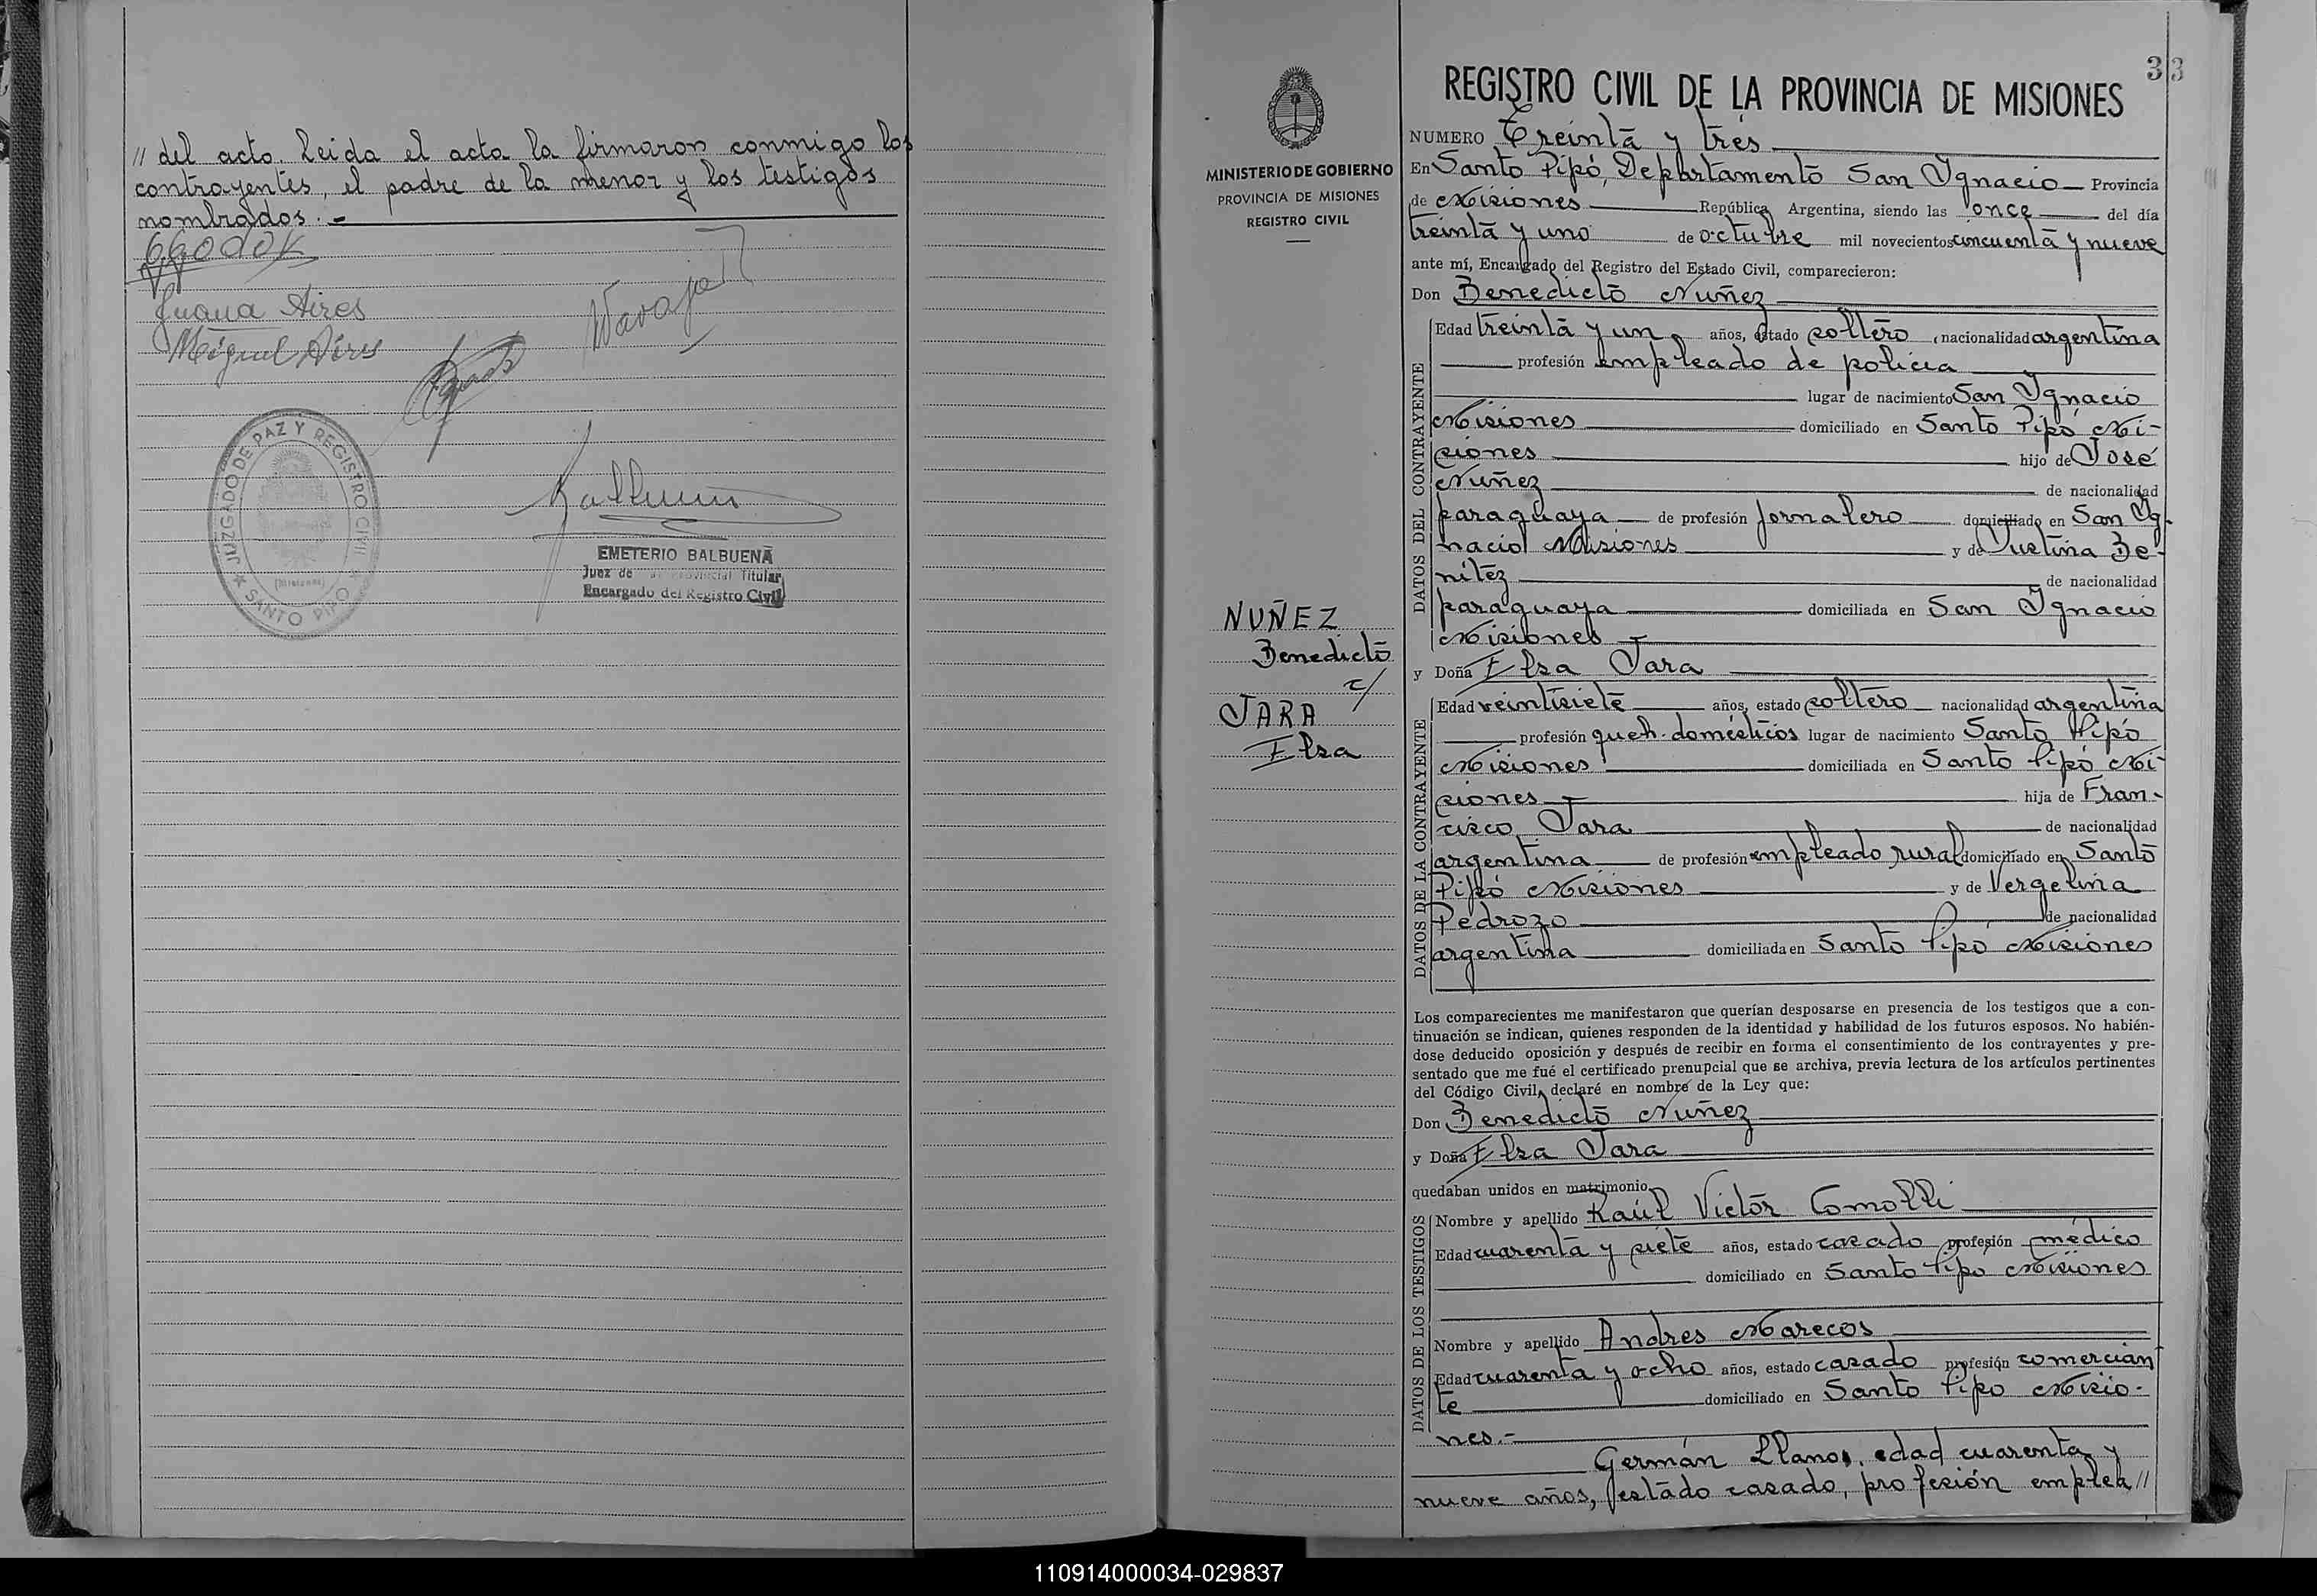 // del acto. Leida el acta la firmaron conmigo los
contrayentes, el padre de la menor y los testigos
nombrados.-
Juana Aires
Miguel Aires
JUZGADO DE PAZ Y REGISTRO CIVIL
(Misiones)
SANTO PIPO
EMETERIO BALBUENA
Juez de Provincial Titular
Encargado del Registro Civil
33
MINISTERIO DE GOBIERNO
PROVINCIA DE MISIONES
REGISTRO CIVIL
NUÑEZ
Benedicto
c/
JARA
Elsa
REGISTRO CIVIL DE LA PROVINCIA DE MISIONES
NUMERO Treinta y tres
En Santo Pipó, Departamento San Ignacio Provincia
de Misiones República Argentina, siendo las once del día
treinta y uno de octubre mil novecientos cincuenta y nueve
ante mí, Encargado del Registro del Estado Civil, comparecieron:
Don Benedicto Nuñez
DATOS DEL CONTRAYENTE
Edad treinta y un años, estado soltero, nacionalidad argentina
profesión empleado de policia
lugar de nacimiento San Ignacio
Misiones domiciliado en Santo Pipó Mi-
siones hijo de José
Nuñez de nacionalidad
paraguaya de profesión jornalero domiciliado en San Ig-
nacio Misiones y de Justina Be-
nitez de nacionalidad
paraguaya domiciliada en San Ignacio
Misiones
y Doña Elsa Jara
DATOS DE LA CONTRAYENTE
Edad veintisiete años, estado soltero nacionalidad argentina
profesión queh. domésticos lugar de nacimiento Santo Pipó
Misiones domiciliada en Santo Pipó Mi-
siones hija de Fran-
cisco Jara de nacionalidad
argentina de profesión empleado rural domiciliado en Santo
Pipó Misiones y de Vergelina
Pedrozo de nacionalidad
argentina domiciliada en Santo Pipó Misiones
Los comparecientes me manifestaron que querían desposarse en presencia de los testigos que a con-
tinuación se indican, quienes responden de la identidad y habilidad de los futuros esposos. No habién-
dose deducido oposición y después de recibir en forma el consentimiento de los contrayentes y pre-
sentado que me fué el certificado prenupcial que se archiva, previa lectura de los artículos pertinentes
del Código Civil, declaré en nombre de la Ley que:
Don Benedicto Nuñez
y Doña Elsa Jara
quedaban unidos en matrimonio.
DATOS DE LOS TESTIGOS
Nombre y apellido Raúl Victor Comolli
Edad cuarenta y siete años, estado casado profesión médico
domiciliado en Santo Pipó Misiones
Nombre y apellido Andres Marecos
Edad cuarenta y ocho años, estado casado profesión comercian
te domiciliado en Santo Pipo Misio-
nes.-
Germán Llanos, edad cuarenta y
nueve años, estado casado, profesión emplea//
110914000034-029837